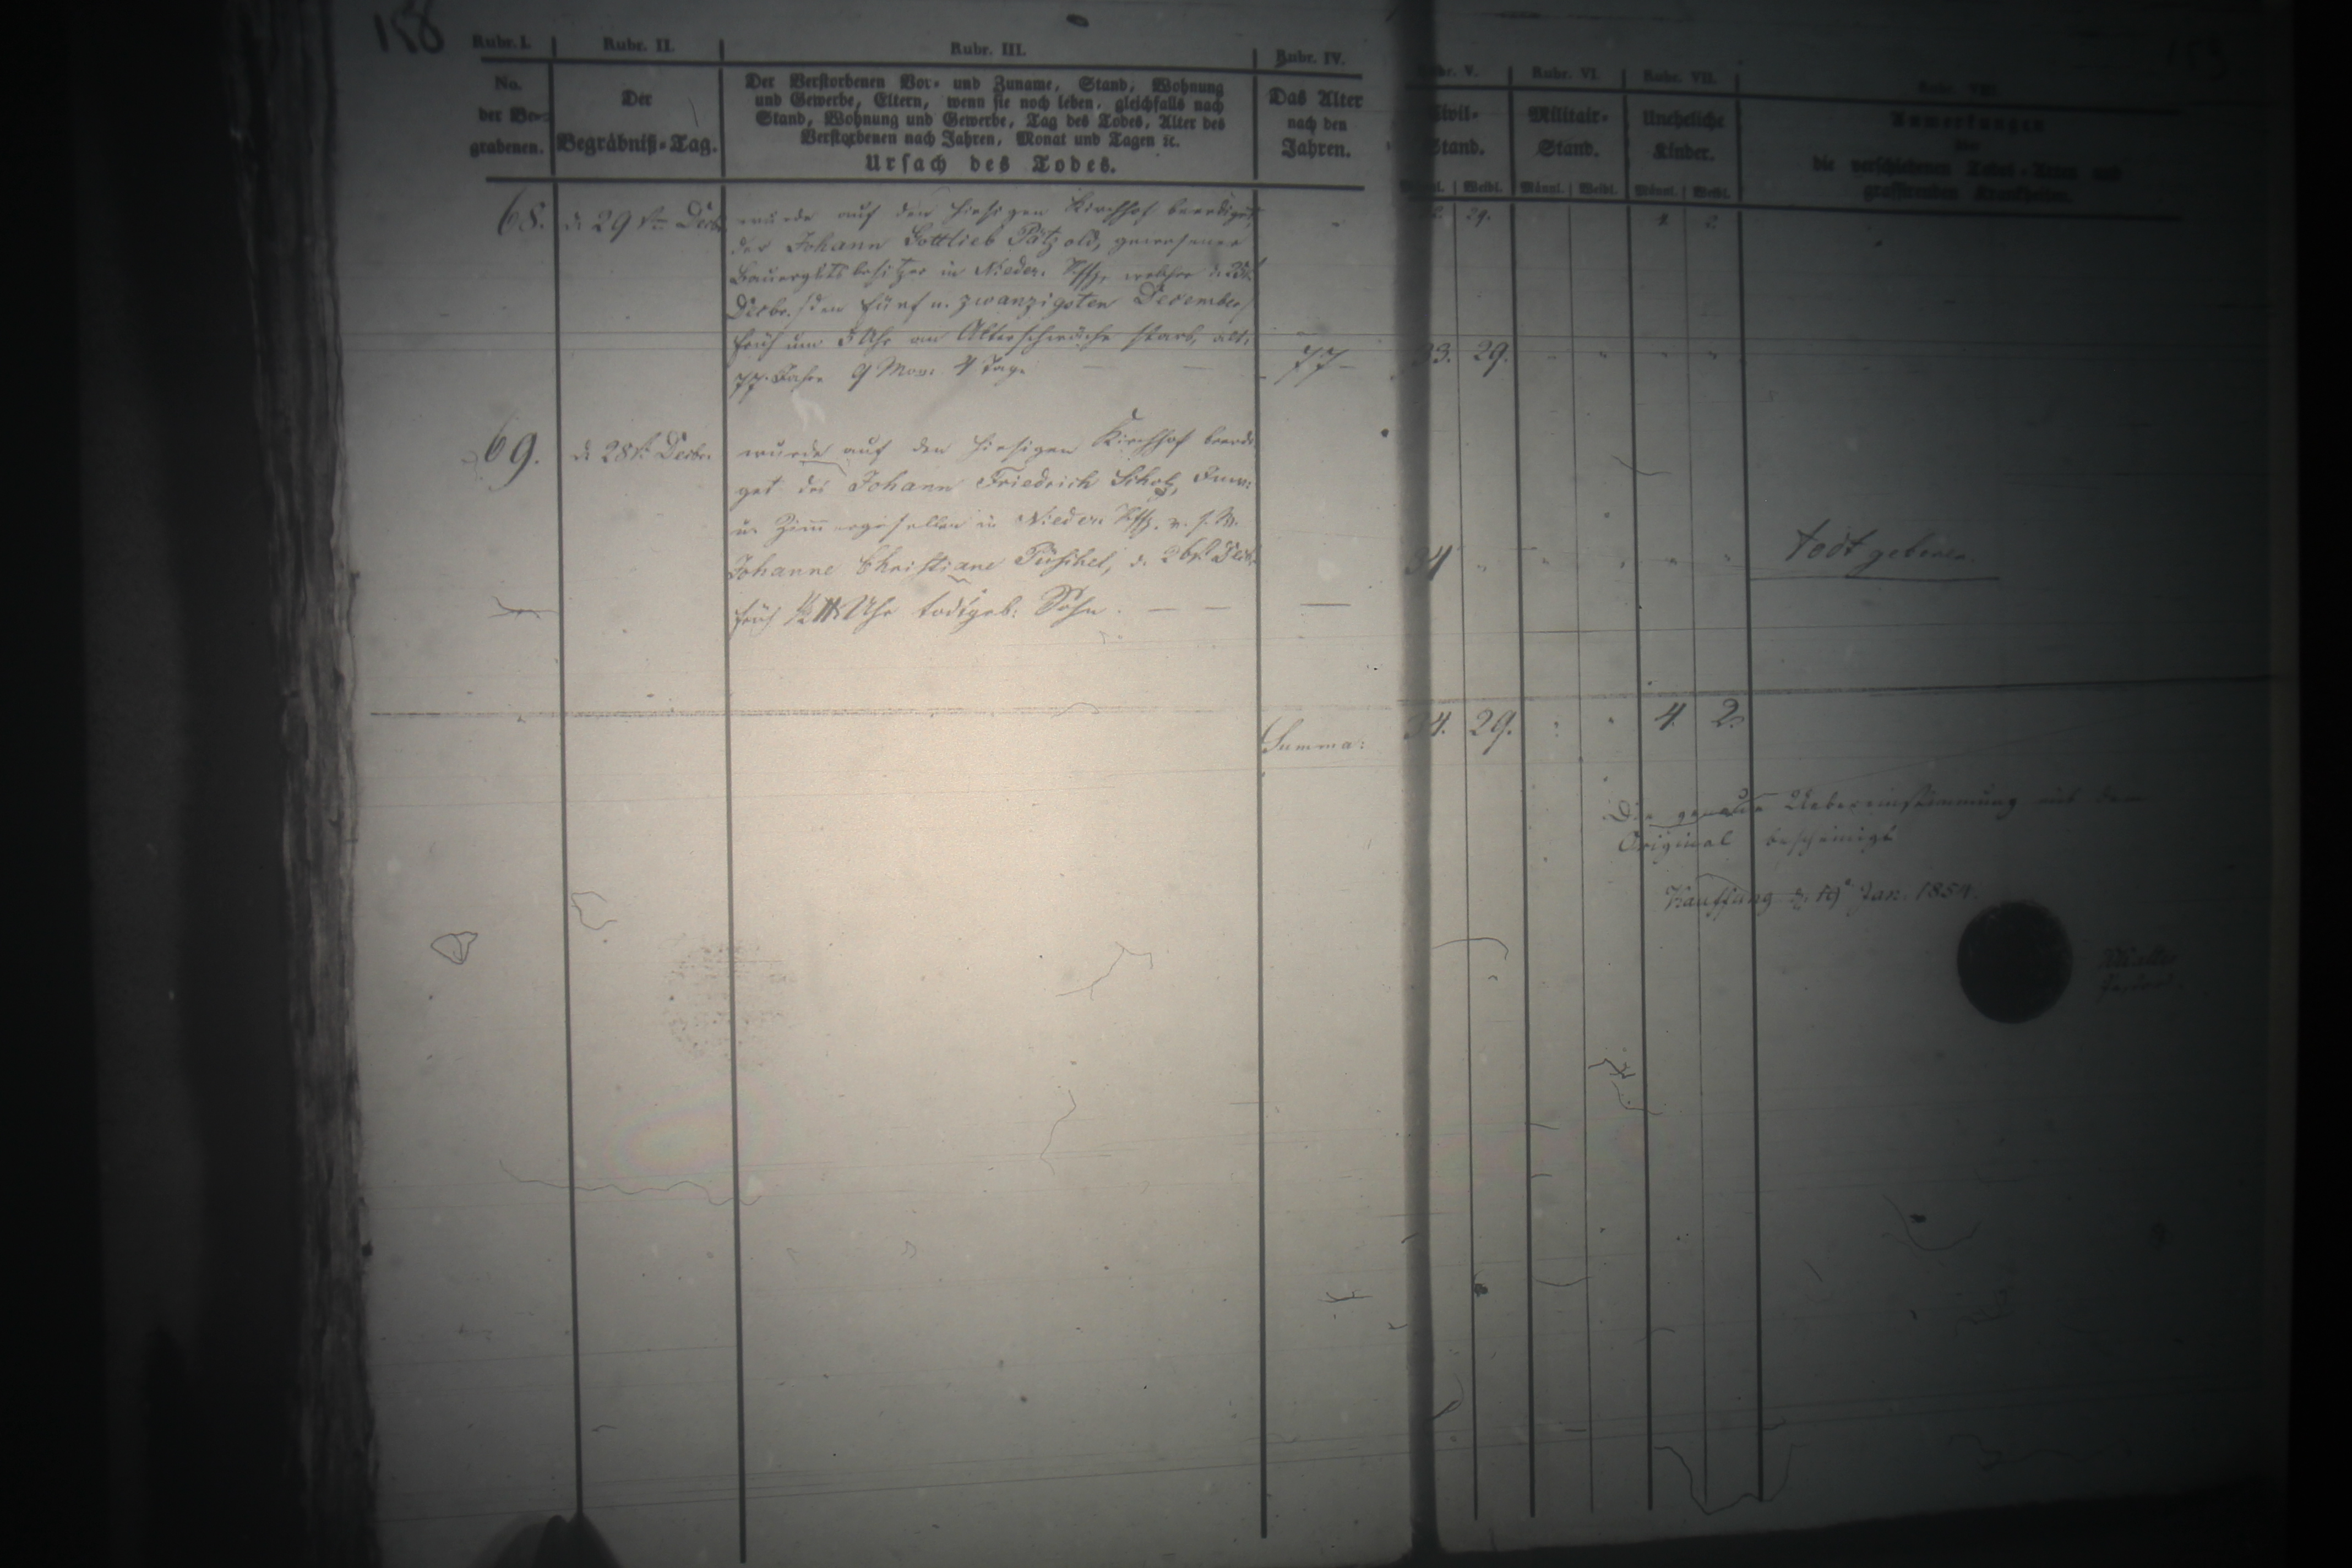 158
Rubr. I. Rubr. II. Rubr. III. Rubr. IV.
No. der Be= grabenen.
Der Begräbniß=Tag.
Der Verstorbenen Vor= und Zuname, Stand, Wohnung
und Gewerbe, Eltern, wenn sie noch leben, gleichfalls nach
Stand, Wohnung und Gewerbe, Tag des Todes, Alter des
Verstorbenen nach Jahren, Monat und Tagen ꝛc.
Ursach des Todes.
Das Alter nach den Jahren.
68. d. 29ten Decbr. wurde auf den hiesigen Kirchhof beerdiget,
der Johann Gottlieb Pätzold, gewesener
Bauergutsbesitzer in Nieder. Kffg, welcher d. 25t
Decbr. /den fünf u. zwanzigsten December/
früh um 5 Uhr an Altersschwäche starb, alt,
77. Jahre 9 Mon. 4 Tage — — 77 —
69. d. 28t. Decbr. wurde auf den hiesigen Kirchhof beerdi
get des Johann Friedrich Scholz, Inw:
u. Zimmergesellen in Nieder. Kffg. u. s. W.
Johanne Christiane Püschel, d. 26t. Decbr.
früh Uhr todtgeb: Sohn. — — —
Summa:
153
Rubr. V. Rubr. VI. Rubr. VII. Rubr. VIII.
Civil= Stand.
Militair= Stand.
Uneheliche Kinder.
Anmerkungen
über
die verschiedenen Todes=Arten und
grassirenden Krankheiten.
Männl. Weibl. Männl. Weibl. Männl. Weibl.
29. 4. 2.
33. 29. " " " "
34 " " " " todt geboren.
34. 29. 4. 2.
Die genaue Uebereinstimmung mit dem
Original bescheinigt
Kauffung d. 19t Jan. 1854.
Pastor.